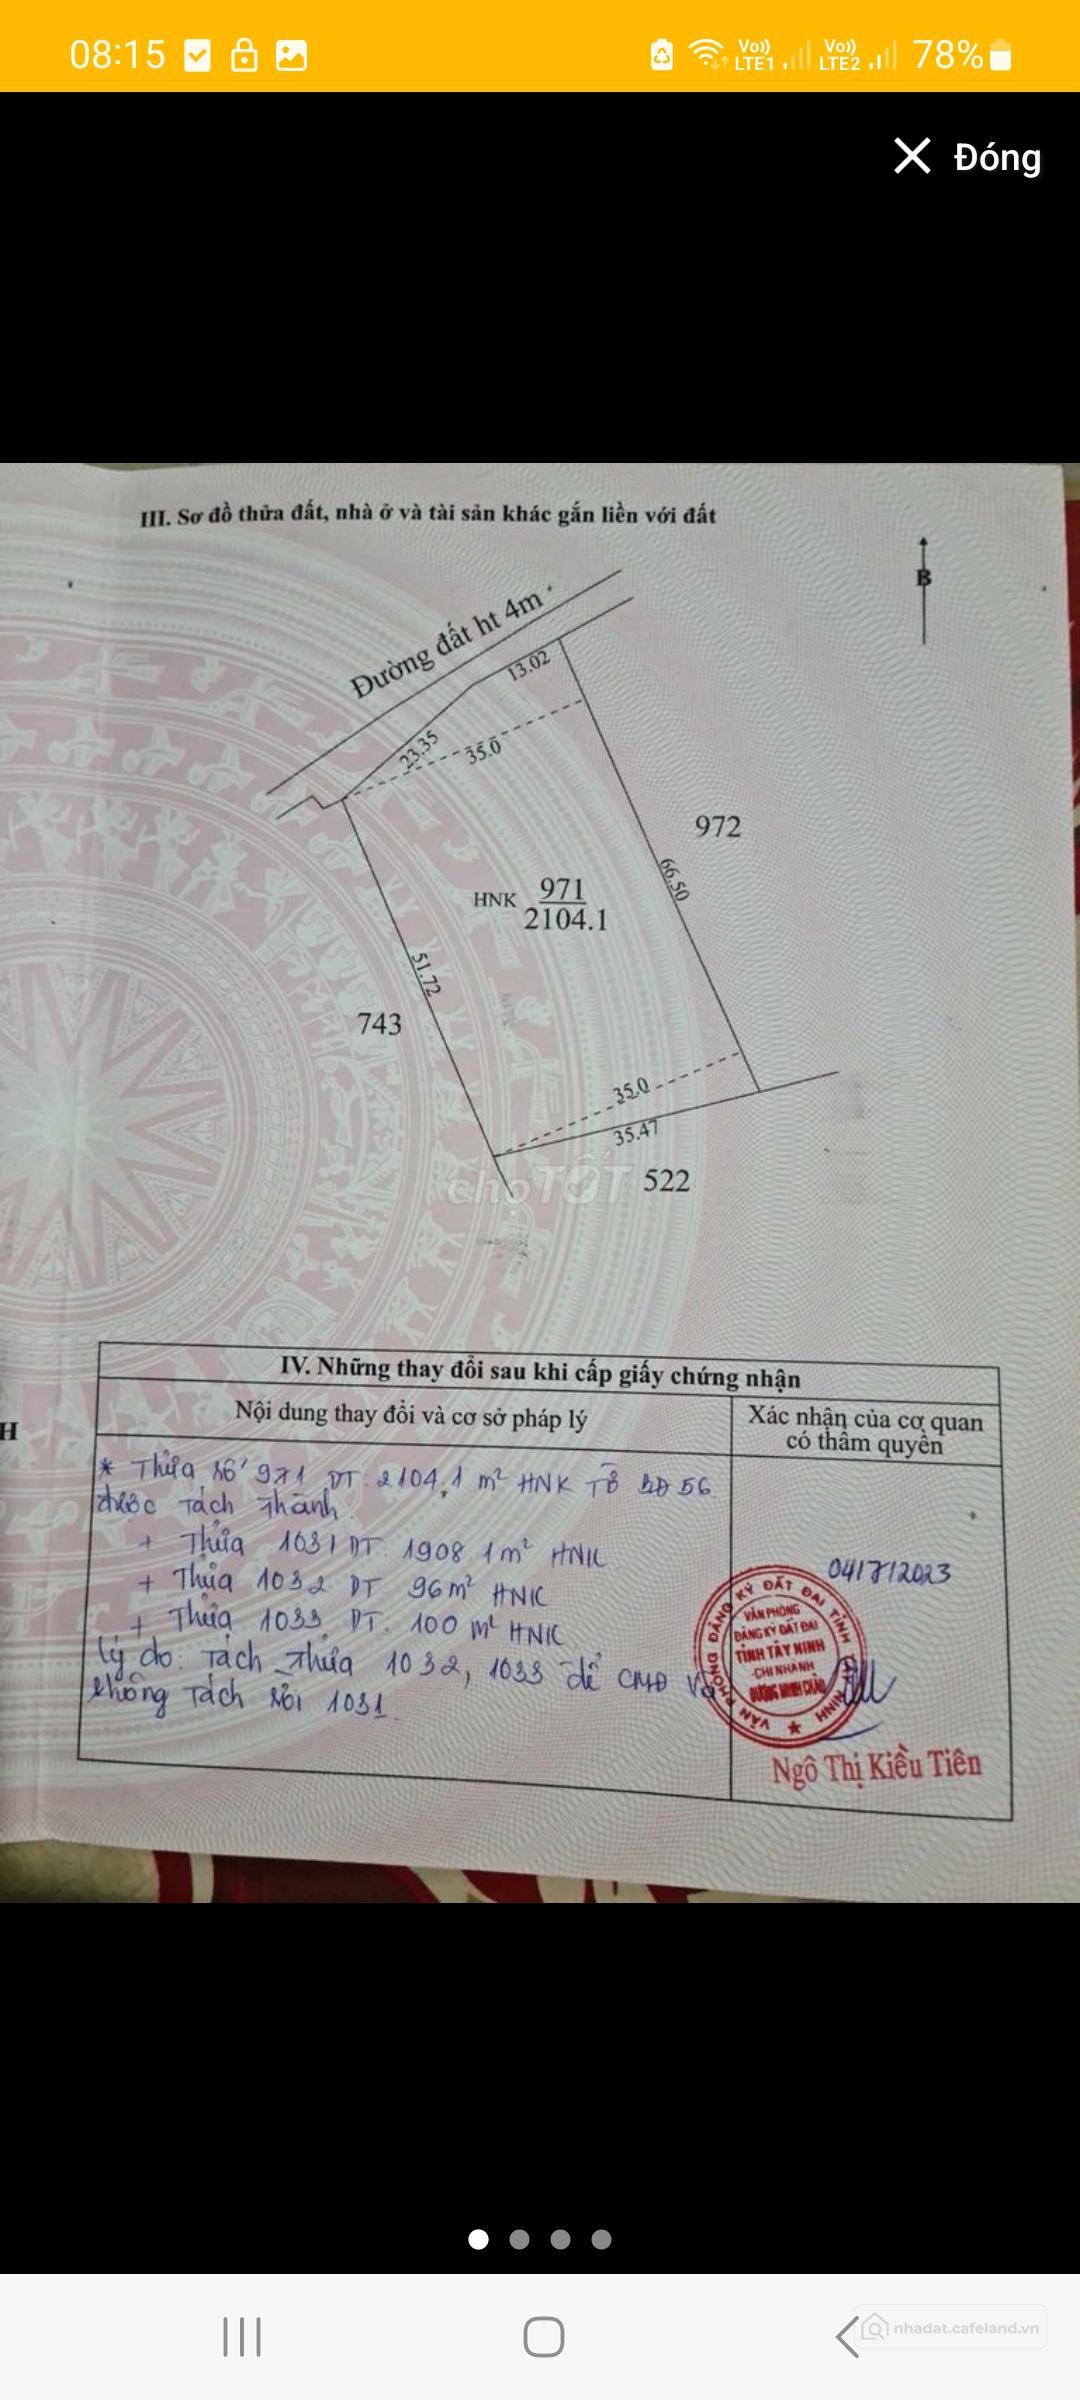 08:15
Vo)) LTE1 Vo)) LTE2 78%
Đóng
III. Sơ đồ thửa đất, nhà ở và tài sản khác gắn liền với đất
B
Đường đất ht 4m
13.02
23.35
35.0
972
66.50
HNK 971
2104.1
51.72
743
35.0
35.47
chợTỐT
522
IV. Những thay đổi sau khi cấp giấy chứng nhận
Nội dung thay đổi và cơ sở pháp lý
Xác nhận của cơ quan
có thẩm quyền
H
* Thửa số 971 DT: 2104,1 m² HNK TỜ BĐ 56
được tách thành
+ Thửa 1031 DT: 1908,1m² HNK
+ Thửa 1032 DT 96m² HNK
+ Thửa 1033 DT. 100 m² HNK
lý do: Tách Thửa 1032, 1033 để CMĐ và
không tách sổi 1031.
VĂN PHÒNG ĐĂNG KÝ ĐẤT ĐAI TỈNH TÂY NINH
VĂN PHÒNG
ĐĂNG KÝ ĐẤT ĐAI
TỈNH TÂY NINH
-CHI NHÁNH
DƯƠNG MINH CHÂU
Ngô Thị Kiều Tiên
nhadat.cafeland.vn